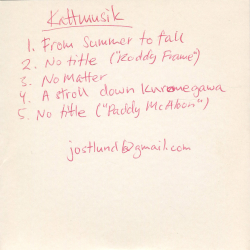 Kattmusik
1. From Summer to fall
2. No title ("Roddy Frame")
3. No Matter
4 A stroll down Kuromegawa
5. No title ("Paddy McAloon")
jostlund@gmail.com